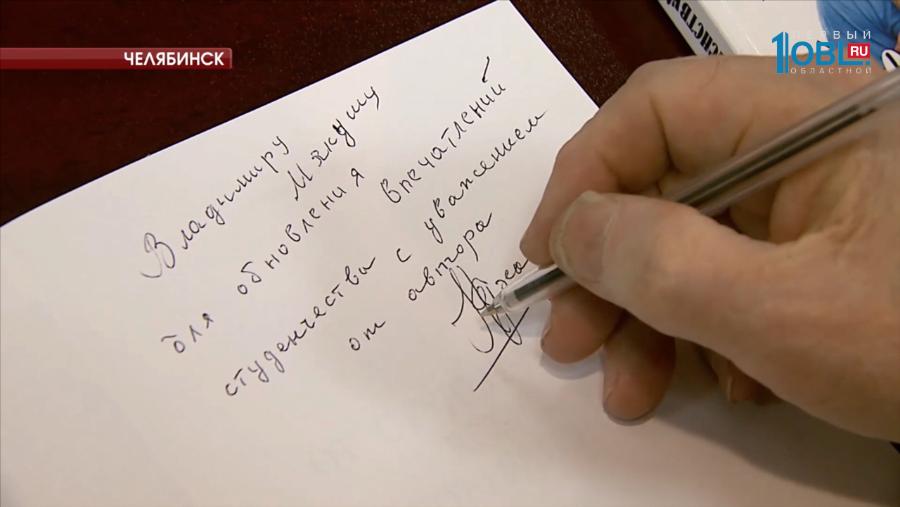 ЧЕЛЯБИНСК
1 ПЕРВЫЙ
OBL.RU
ОБЛАСТНОЙ
Владимиру
Мякушу
для обновления
впечатлений
студенчества с уважением
от автора